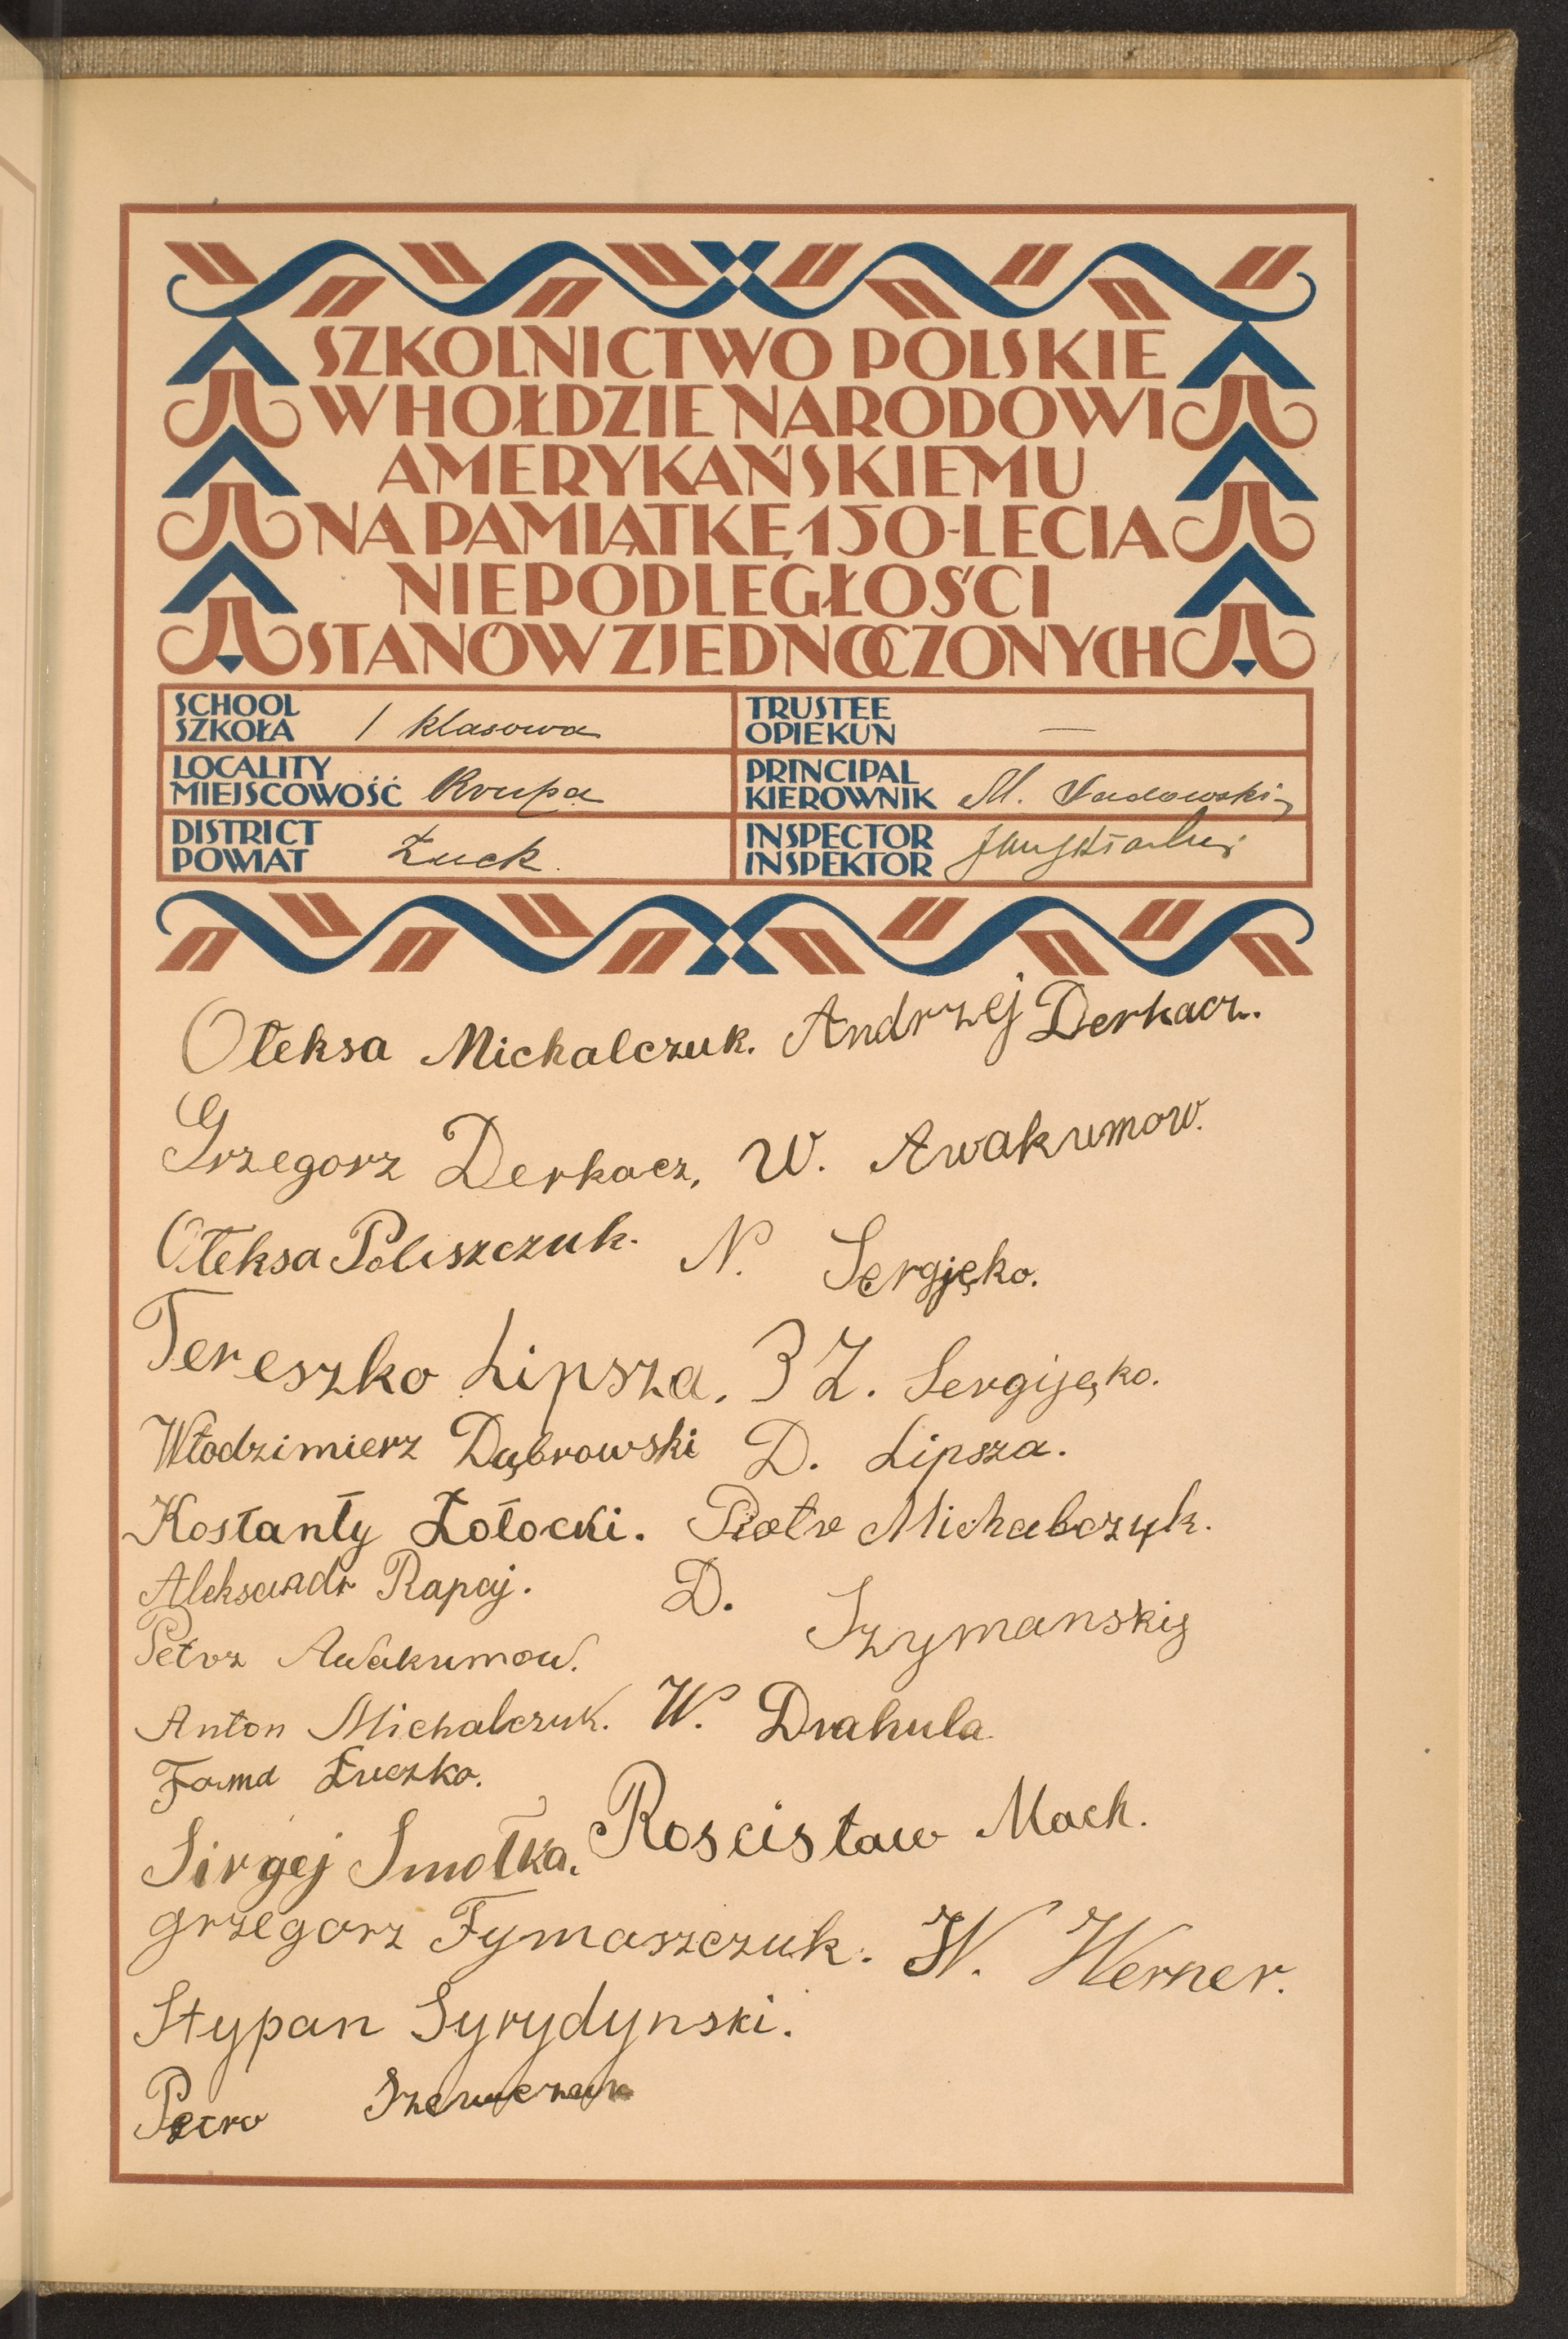 SZKOLNICTWO POLSKIE
W HOŁDZIE NARODOWI
AMERYKAŃSKIEMU
NA PAMIĄTKĘ 150-LECIA
NIEPODLEGŁOŚCI
STANÓW ZJEDNOCZONYCH
SCHOOL
SZKOŁA 1 klasowa
TRUSTEE
OPIEKUN —
LOCALITY
MIEJSCOWOŚĆ Krupa
PRINCIPAL
KIEROWNIK M. Sadowski
DISTRICT
POWIAT Łuck.
INSPECTOR
INSPEKTOR
Ołeksa Michalczuk. Andrzej Derkacz.
Grzegorz Derkacz, W. Awakumow.
Ołeksa Poliszczuk. N. Sergjęko.
Tereszko Lipsza. Z. Sergijęko.
Włodzimierz Dąbrowski D. Lipsza.
Kostanty Żołocki. Piotr Michalczyk.
Aleksandr Rapaj. D. Szymanskij
Petrz Awakumow.
Anton Michalczuk. W. Drahula
Foma Łuczko.
Sirgej Smołka. Roscisław Mach.
Grzegorz Tymaszczuk. W. Werner.
Stypan Syrydynski.
Petro Szewczuk